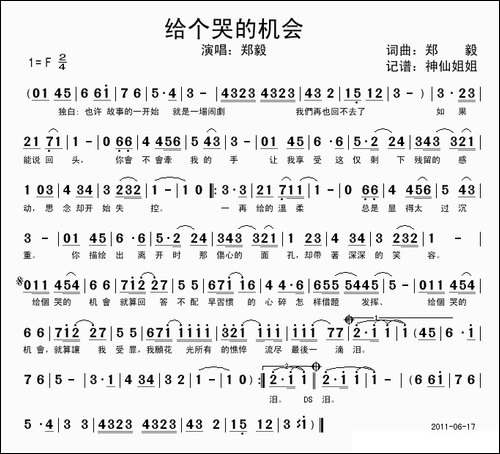 给个哭的机会
演唱：郑毅
词曲：郑 毅
1=F 2/4
记谱：神仙姐姐
(01 45 | 6 6i | 76 | 5·4 | 3 - | 4323 4323 | 43 23 | 1·2 | 15 12 | 3 - ) | 03 3 |
独白：也许 故事的一开始 就是一場闹劇 我們再也回不去了 如 果
21 71 | 1 - | 0 66 | 4 456 | 5 43 | 3 - | 01 23 | 6·6 | 5·2 24 | 343 321 |
能说 回 头， 你會 不 會牽 我 的 手 让 我享受 这 仅 剩 下 残留的 感
1 03 | 4 34 | 3 232 | 1 - | 1 0) |: 3·3 | 21 711 | 1 - | 0 66 | 4 456 | 5 43 |
动， 思 念 却开始失 控。 一 再 给的 温 柔 总是 显 得太 过 沉
3 - | 01 45 | 6·6 | 5·2 24 | 343 321 | 2·1 | 1 - | 1 - | 1 0 :|
重。 你 描绘 出 离 开 时 那 傷心的 面 孔，却帶 著 深深的 笑 容。
011 454 | 6 6 | 712 27 | 5 4 | 36 | 655 5445 | 5 - | 5 - | 011 454 |
给個 哭的 机 會 就算回 答 不配 早習慣的 心碎 怎样借題 发挥、 给個 哭的
6 6 | 712 27 | 67 | 671 1671 | 321 1 | 1711 77 | 2·1 1 | 1 - | (45 6 |
机 會，就算讓 我 受罪。我願花 光所有 的憔悴 流尽 最後一 滴 泪。
76 | 5 - | 3·1 | 4 34 | 32 | 1 - | 1 0) :| 2·1 1 | 2·1 1 | 1 - | (61 |
泪。 DS 泪。
5·4 | 3 3 | 4323 4323 | 4323 | 1·2 | 12 | 3 1) ||
2011-06-17